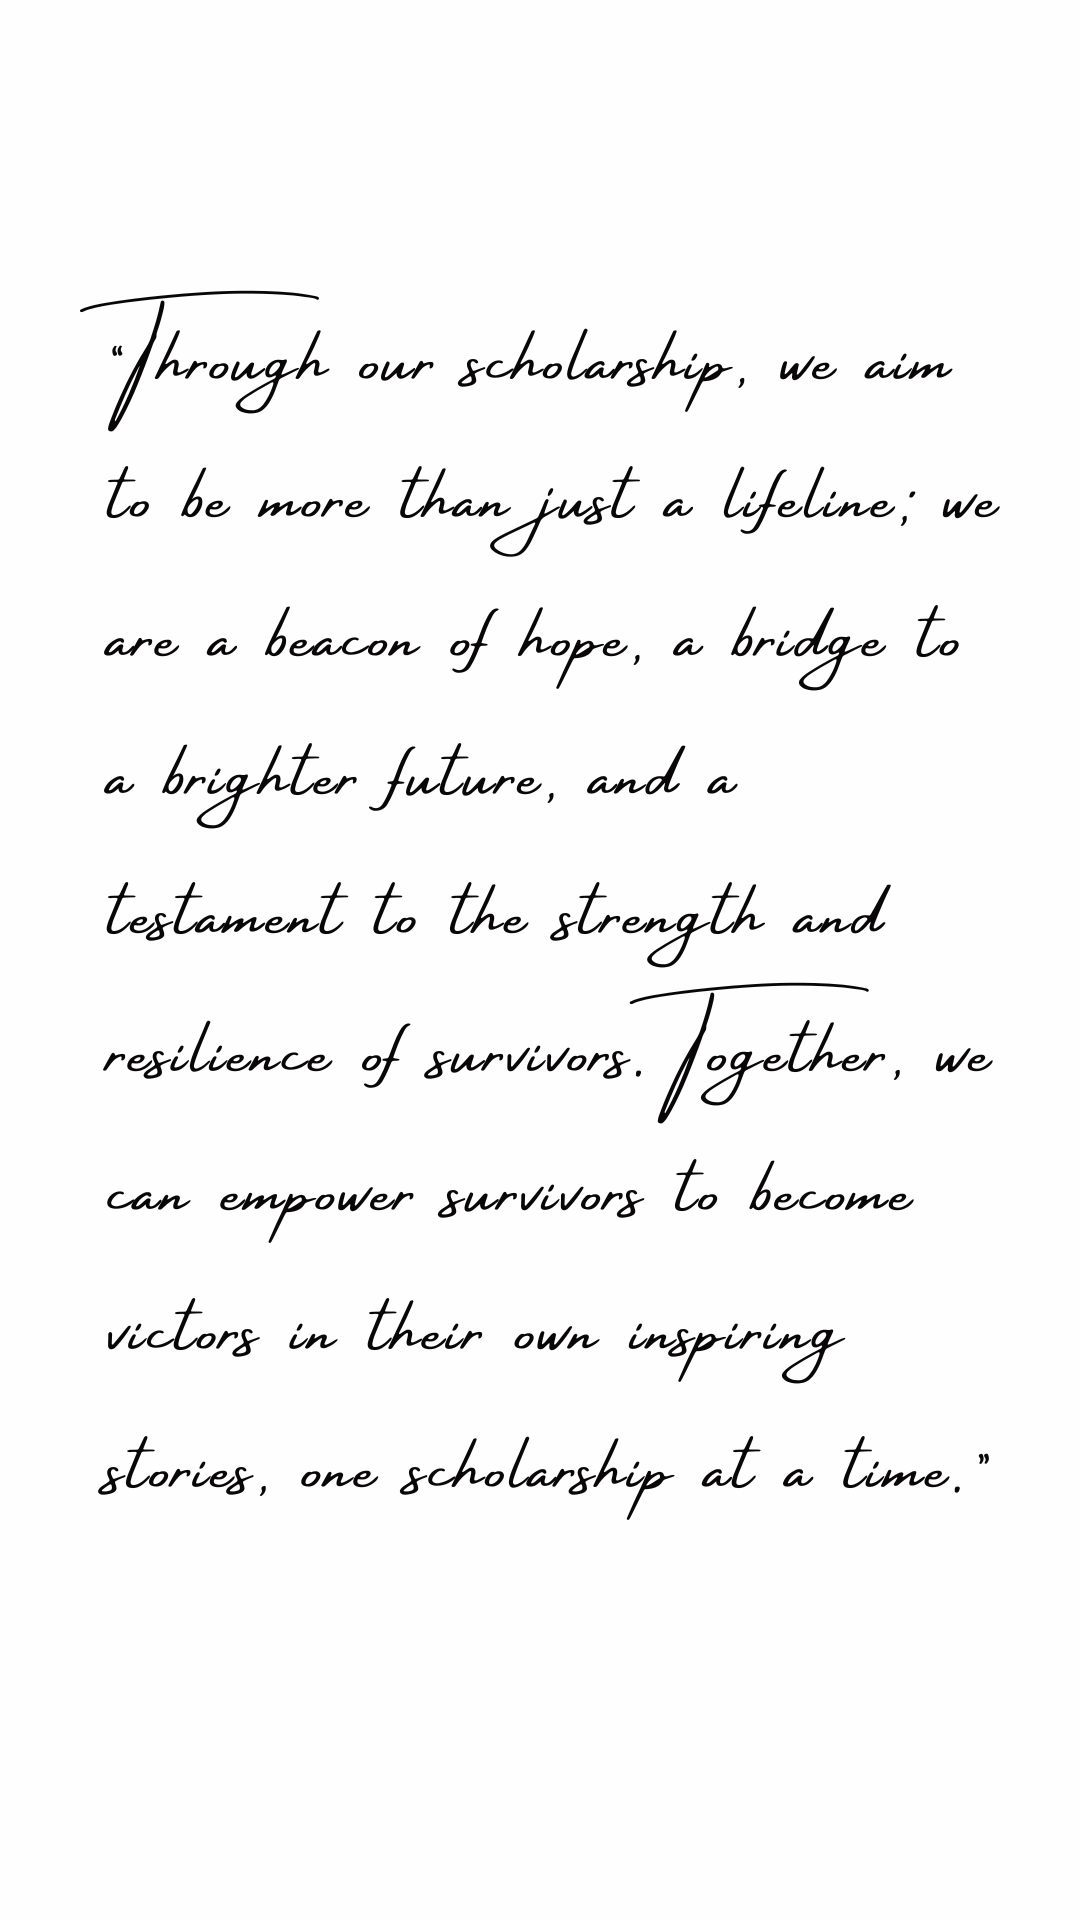 “Through our scholarship, we aim
to be more than just a lifeline; we
are a beacon of hope, a bridge to
a brighter future, and a
testament to the strength and
resilience of survivors. Together, we
can empower survivors to become
victors in their own inspiring
stories, one scholarship at a time.”